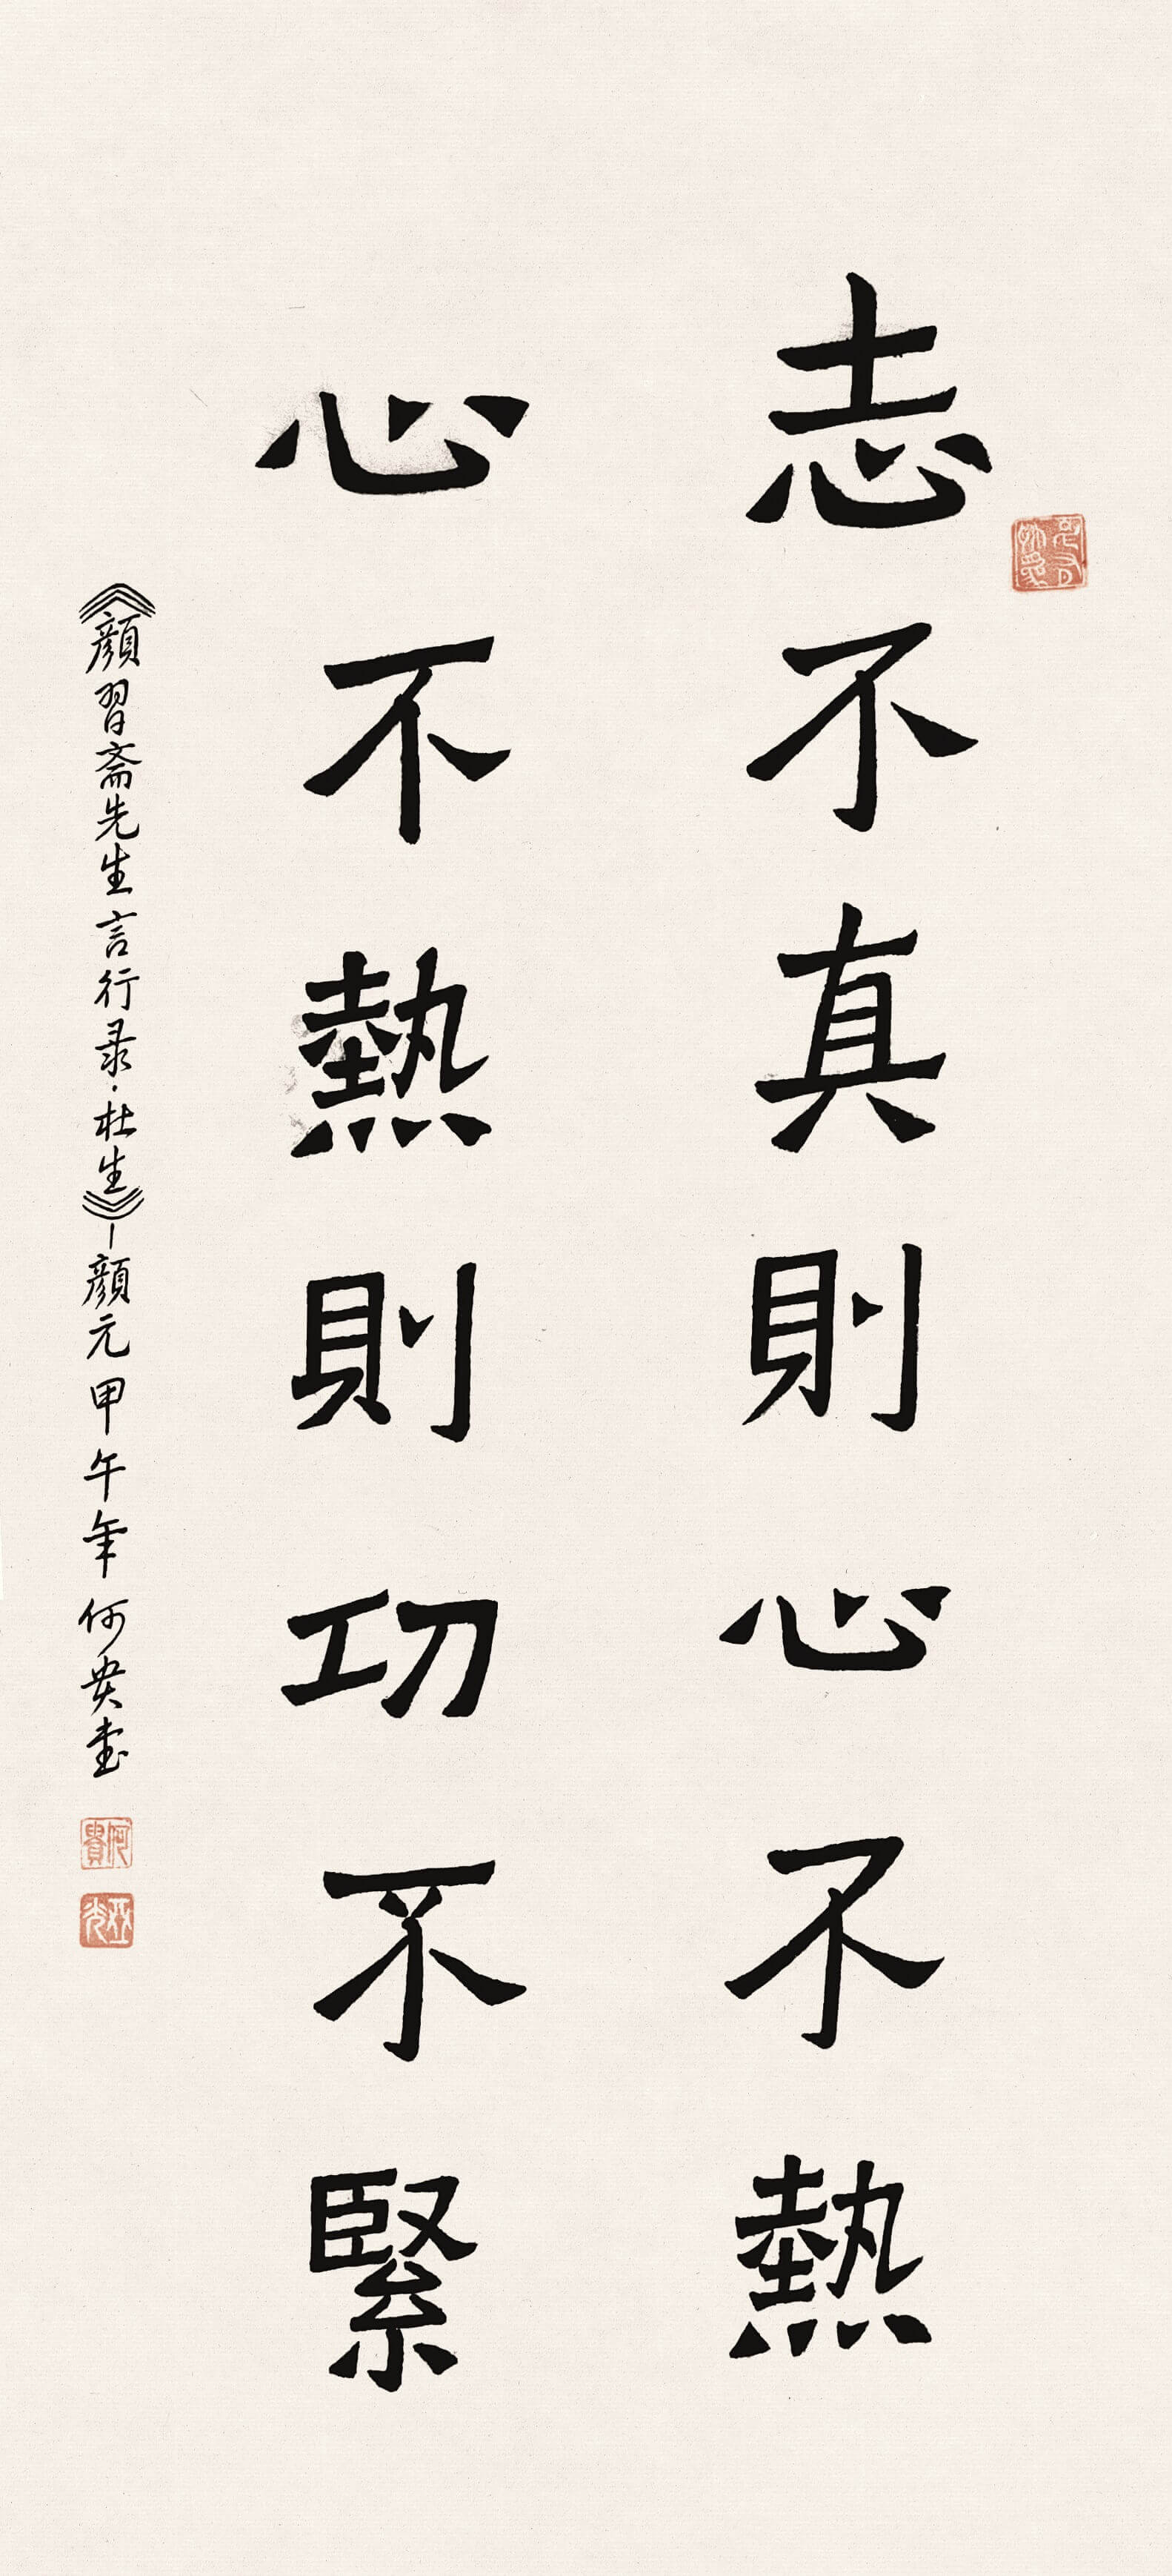 志不真則心不熱
心不熱則功不緊
《顏習斎先生言行录·杜生》—顏元 甲午年 何贵書
何貴